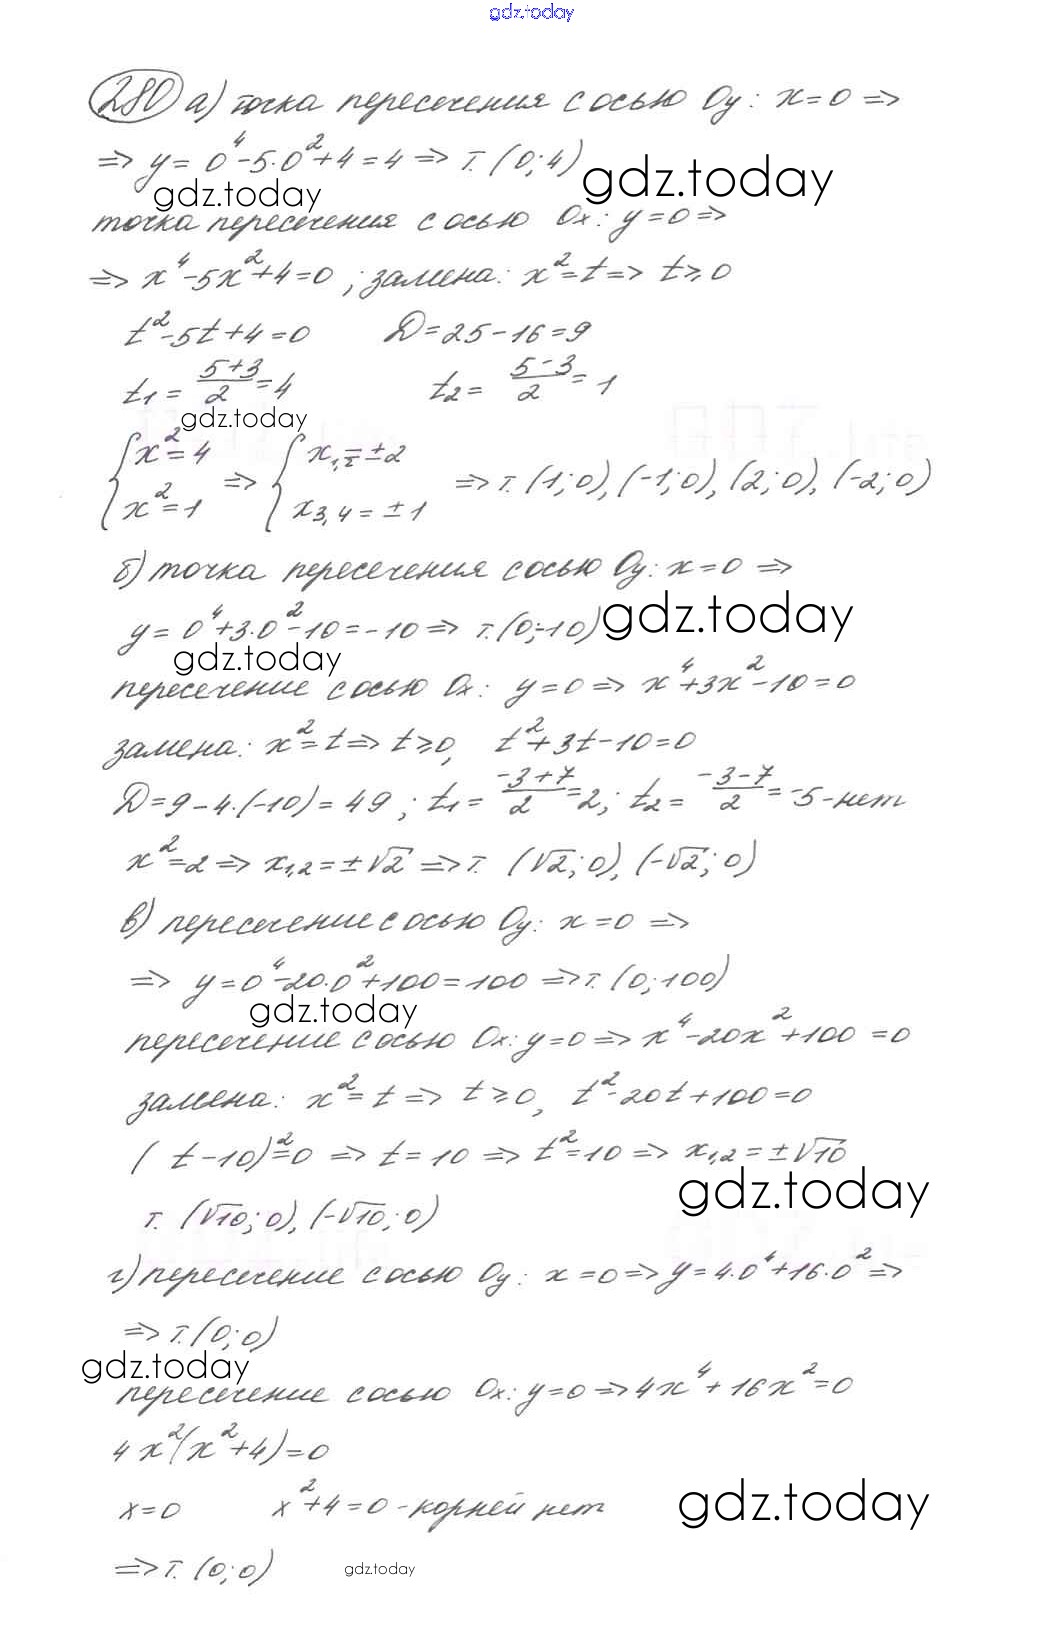 gdz.today
280 а) точка пересечения с осью Oy: x=0 =>
=> y= 0⁴-5·0²+4=4 => т. (0;4)
gdz.today gdz.today
точка пересечения с осью Ox: y=0 =>
=> x⁴-5x²+4=0 ; замена: x²=t => t≥0
t²-5t+4=0 D=25-16=9
t₁= (5+3)/2 =4 t₂= (5-3)/2 = 1
gdz.today
{x²=4 => {x₁,₂=±2 => т. (1;0), (-1;0), (2;0), (-2;0)
{x²=1 {x₃,₄=±1
б) точка пересечения с осью Oy: x=0 =>
y= 0⁴+3·0²-10=-10 => т. (0;-10) gdz.today
gdz.today
пересечение с осью Ox: y=0 => x⁴+3x²-10=0
замена: x²=t => t≥0, t²+3t-10=0
D=9-4·(-10)=49 ; t₁= (-3+7)/2 =2; t₂= (-3-7)/2 =-5-нет
x²=2 => x₁,₂=±√2 => т. (√2;0), (-√2;0)
в) пересечение с осью Oy: x=0 =>
=> y=0⁴-20·0²+100=100 => т. (0;100)
gdz.today
пересечение с осью Ox: y=0 => x⁴-20x²+100=0
замена: x²=t => t≥0, t²-20t+100=0
(t-10)²=0 => t=10 => t²=10 => x₁,₂=±√10
gdz.today
т. (√10;0), (-√10;0)
г) пересечение с осью Oy: x=0 => y=4·0⁴+16·0² =>
=> т. (0;0)
gdz.today
пересечение с осью Ox: y=0 => 4x⁴+16x²=0
4x²(x²+4)=0
x=0 x²+4=0 -корней нет gdz.today
=> т. (0;0) gdz.today